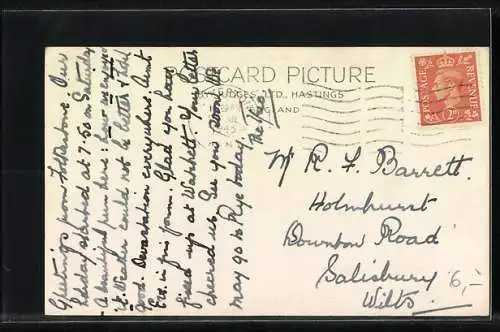 POSTCARD PICTURE
BY JUDGES, LTD, HASTINGS
ENGLAND
1945
POSTAGE
REVENUE
2D
Greetings from Folkestone. Our
holiday started at 7.50 on Saturday
A beautiful run here in our
Weather could not be better & Hotel
good. Devastation everywhere. Aunt
in fine form. Glad you have
fixed up at Watchett. Your letter
cheered us. See you soon. We
may go to Rye today.
The Two.
Mr R. F. Barrett.
Holmhurst
Bourton Road
Salisbury
Wilts.
6,-